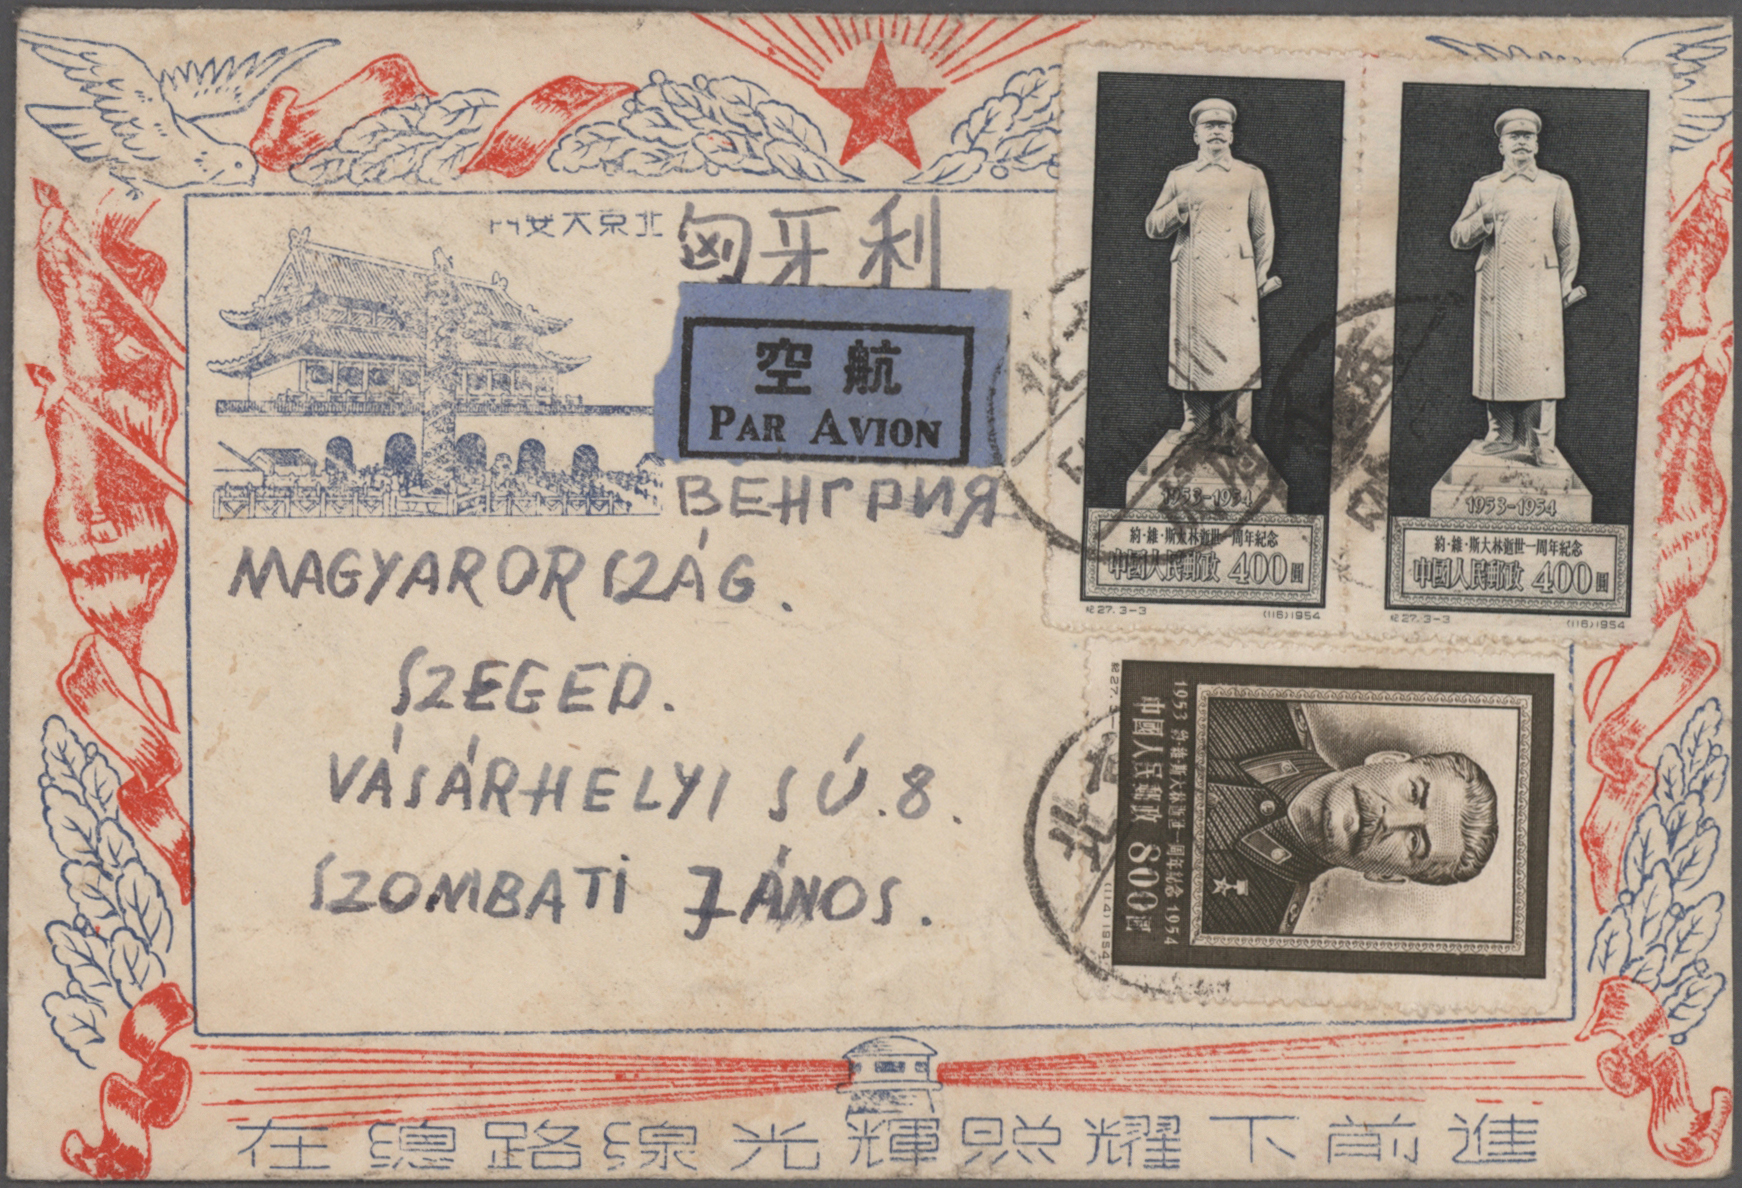 北京天安門
匈牙利
空航
PAR AVION
ВЕНГРИЯ
MAGYARORSZÁG.
SZEGED.
VÁSÁRHELYI SÚ.8.
SZOMBATI JÁNOS.
1953-1954
約·維·斯大林逝世一周年紀念
中國人民郵政 400圓
紀27.3-3 (116)1954
1953-1954
約·維·斯大林逝世一周年紀念
中國人民郵政 400圓
紀27.3-3 (116)1954
1953 約·維·斯大林逝世一周年紀念 1954
中國人民郵政 800圓
紀27. (114)1954
北京
在總路線光輝照耀下前進